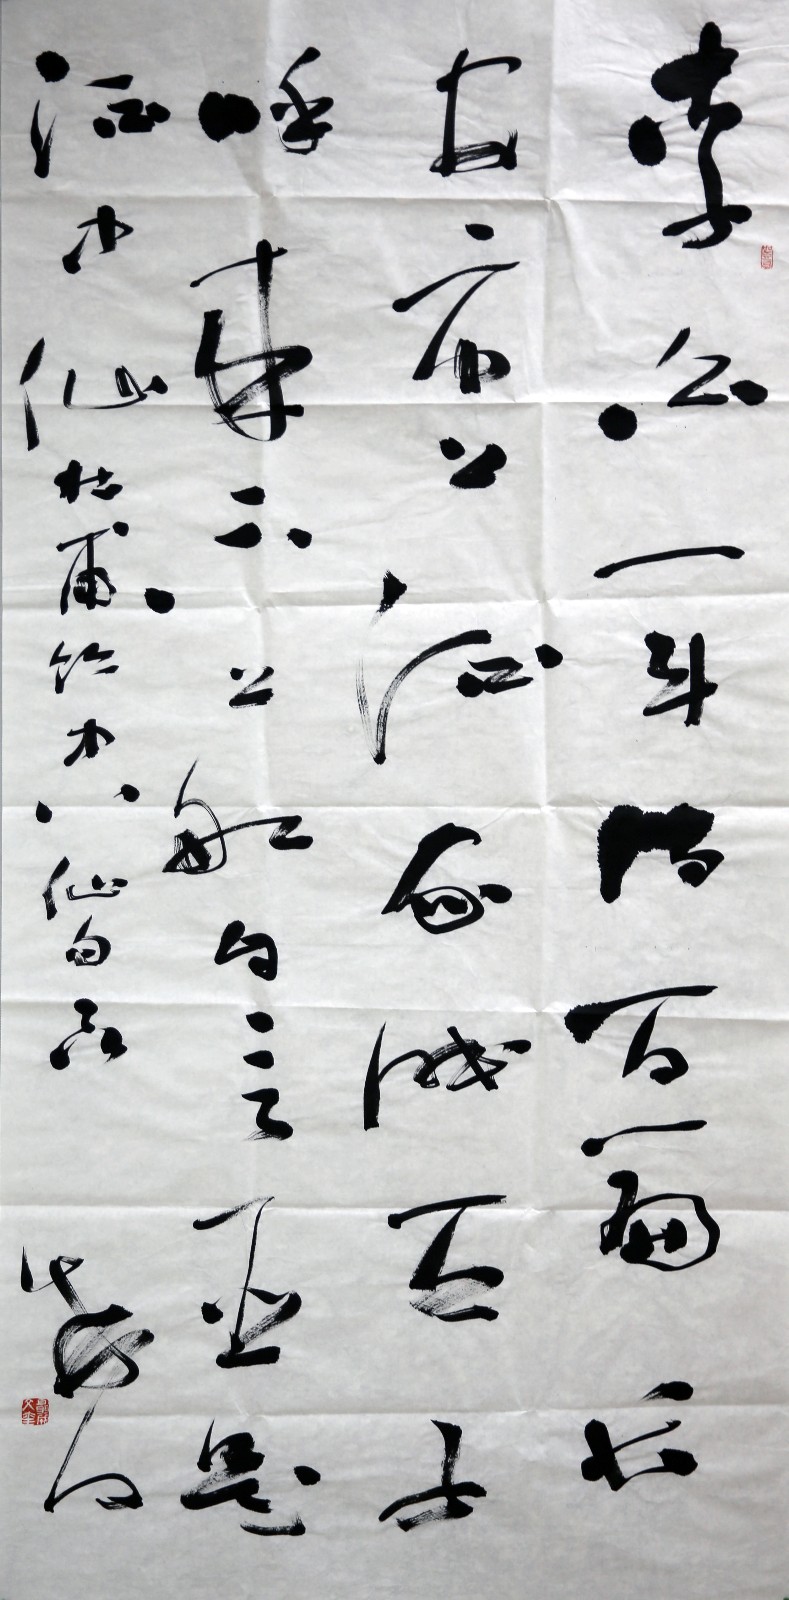 李白一斗诗百篇长
安市上酒家眠天子
呼来不上船自言臣是
酒中仙 杜甫饮中八仙句